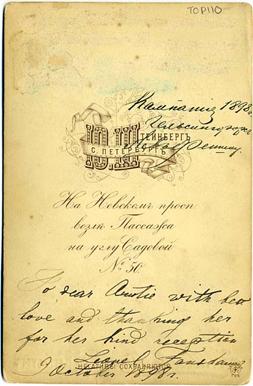 TOP110
Кампанія 1898
Гельсингфорсъ
Ш
ТЕЙНБЕРГЪ
С. ПЕТЕРБУРГЪ
На Невскомъ просп
возлѣ Пассажа
на углу Садовой
№ 50
To dear Auntie with
love and thanking her
for her kind reception
Lionel
НЕГАТИВЫ СОХРАНЯЮТСЯ
October 1898